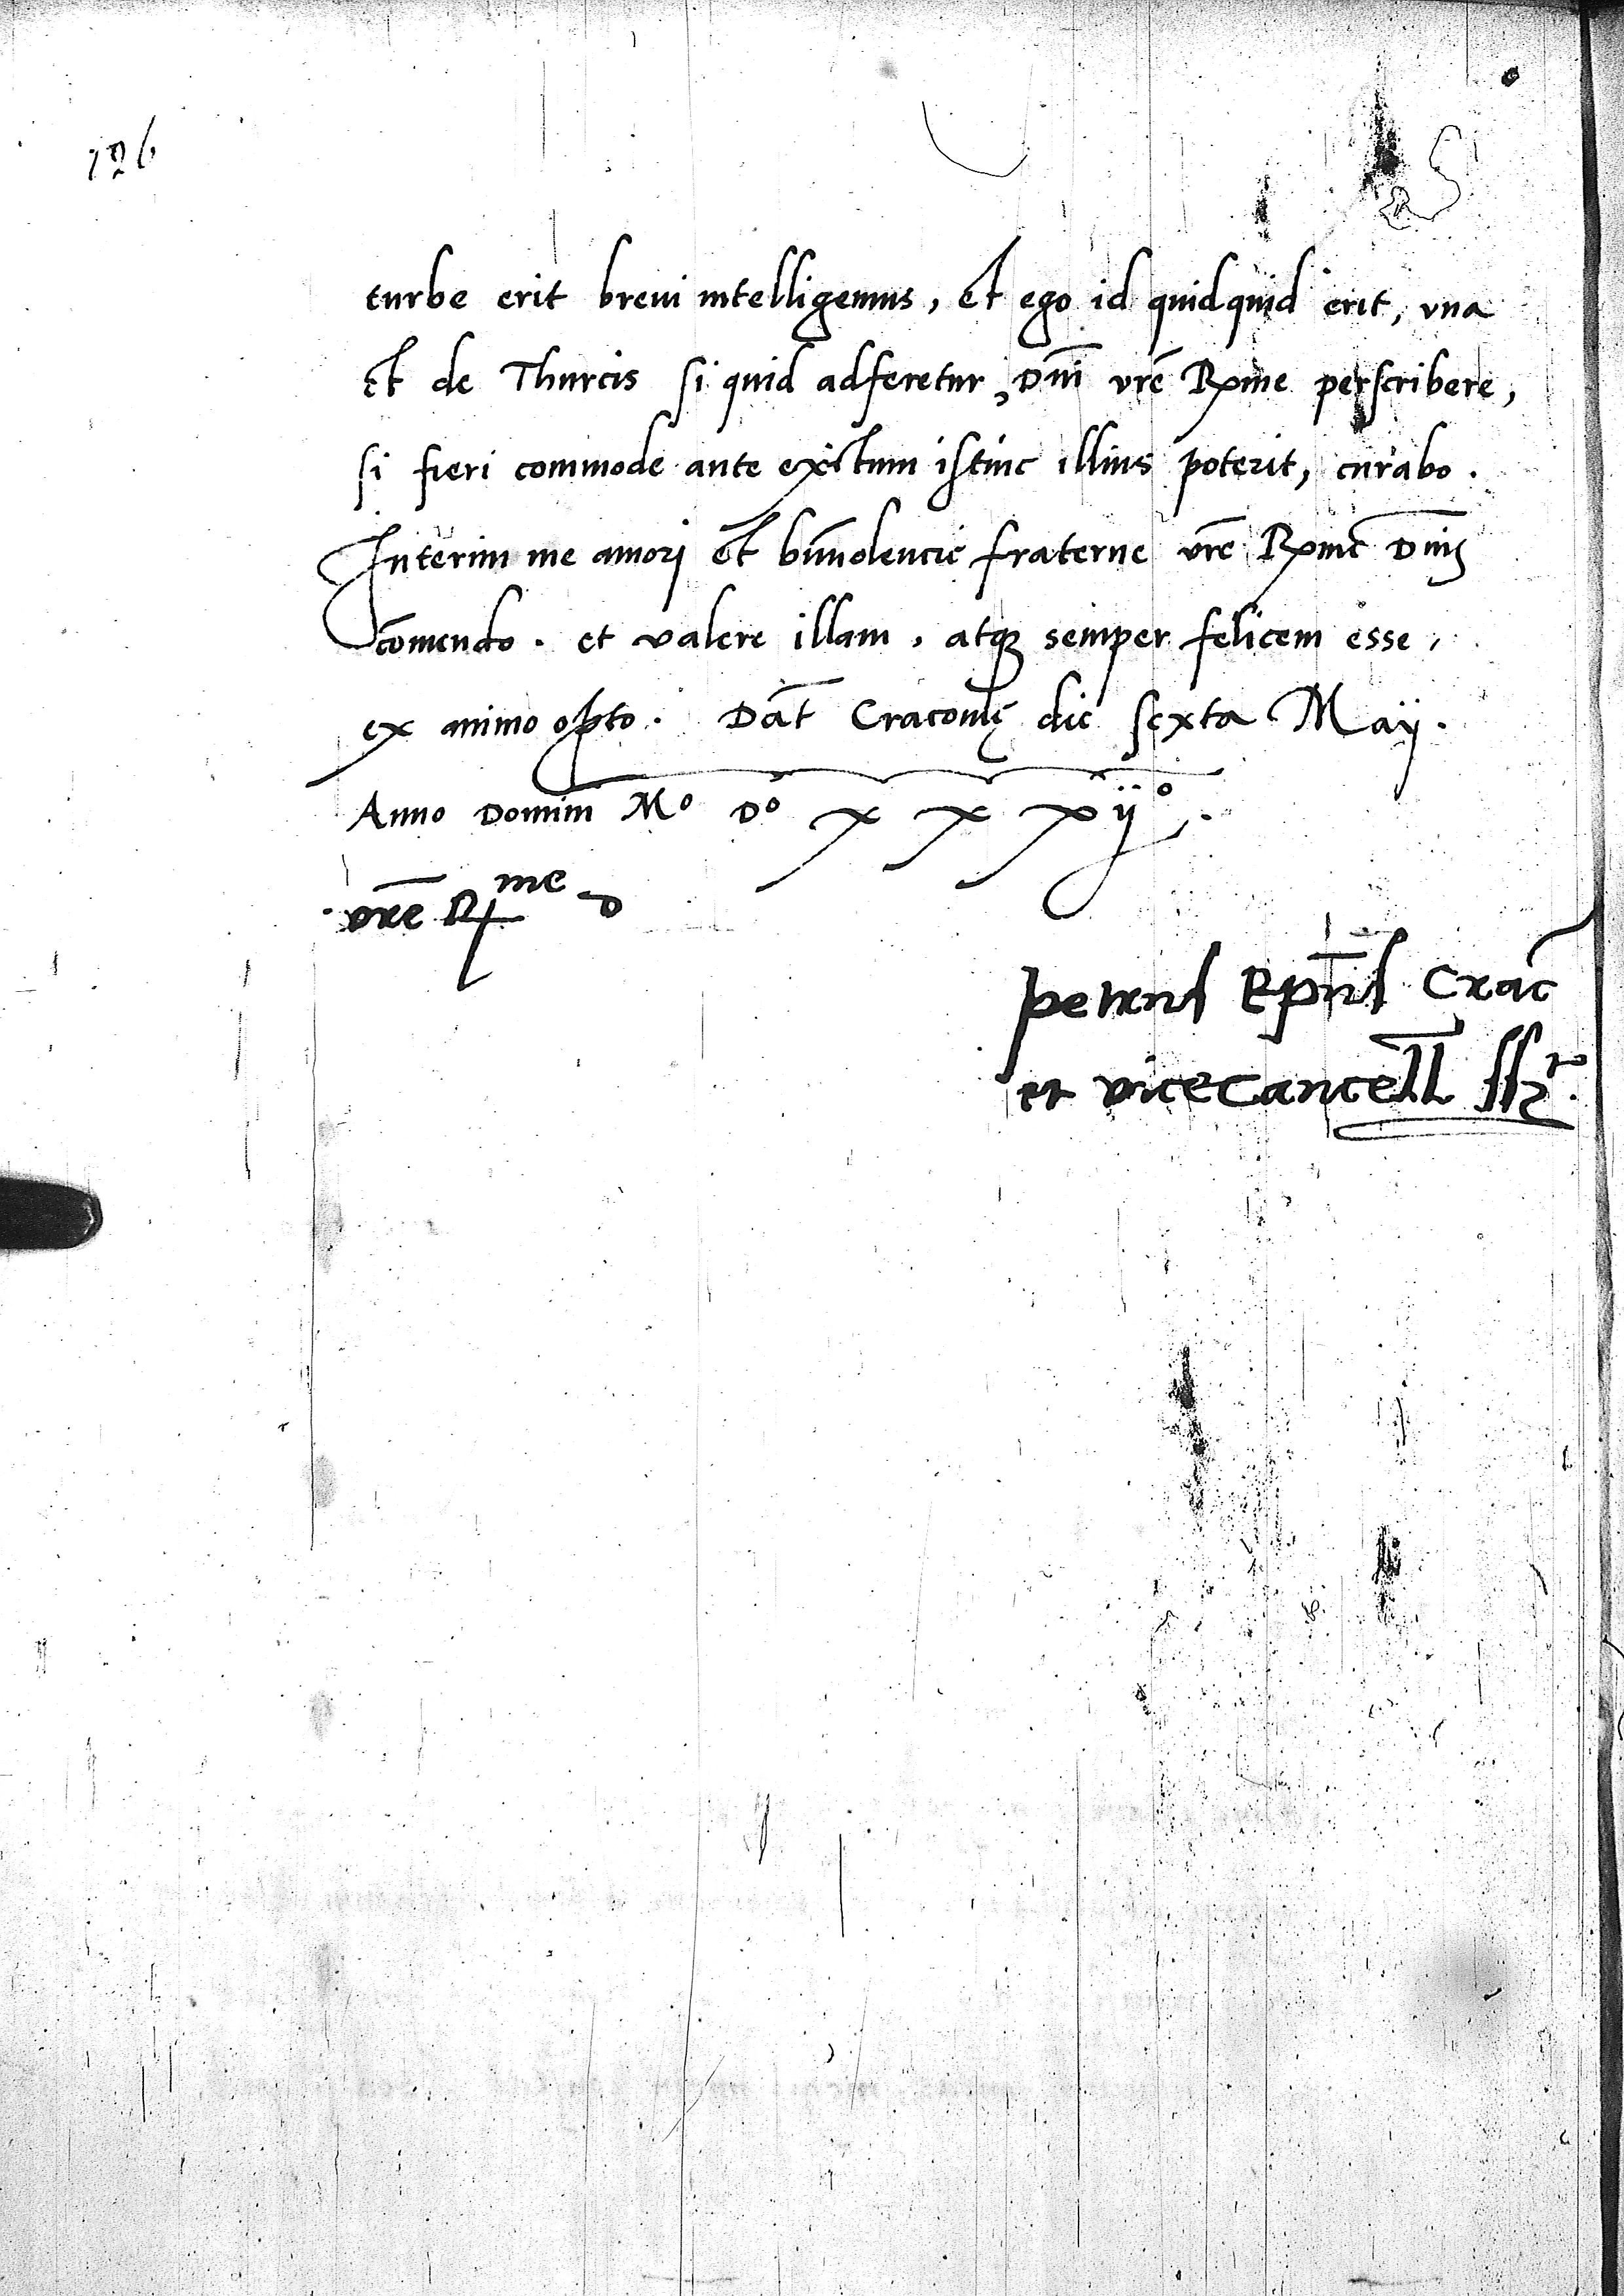 126
turbe erit breui intelligemus, et ego id quidquid erit, vna
et de Thurcis si quid adferetur, Dni vrē Rxme perscribere,
si fieri commode ante exitum istinc illius poterit, curabo.
Interim me amori et bniuolencie fraterne vrē Rxme Dnis
cōmendo. et valere illam, atq semper felicem esse,
ex animo opto. Dat Cracouię die sexta Maij.
Anno Domini Mº Dº xxxijº.
vrē Rme D
petrus Epus Crac
et vicecancell sst.